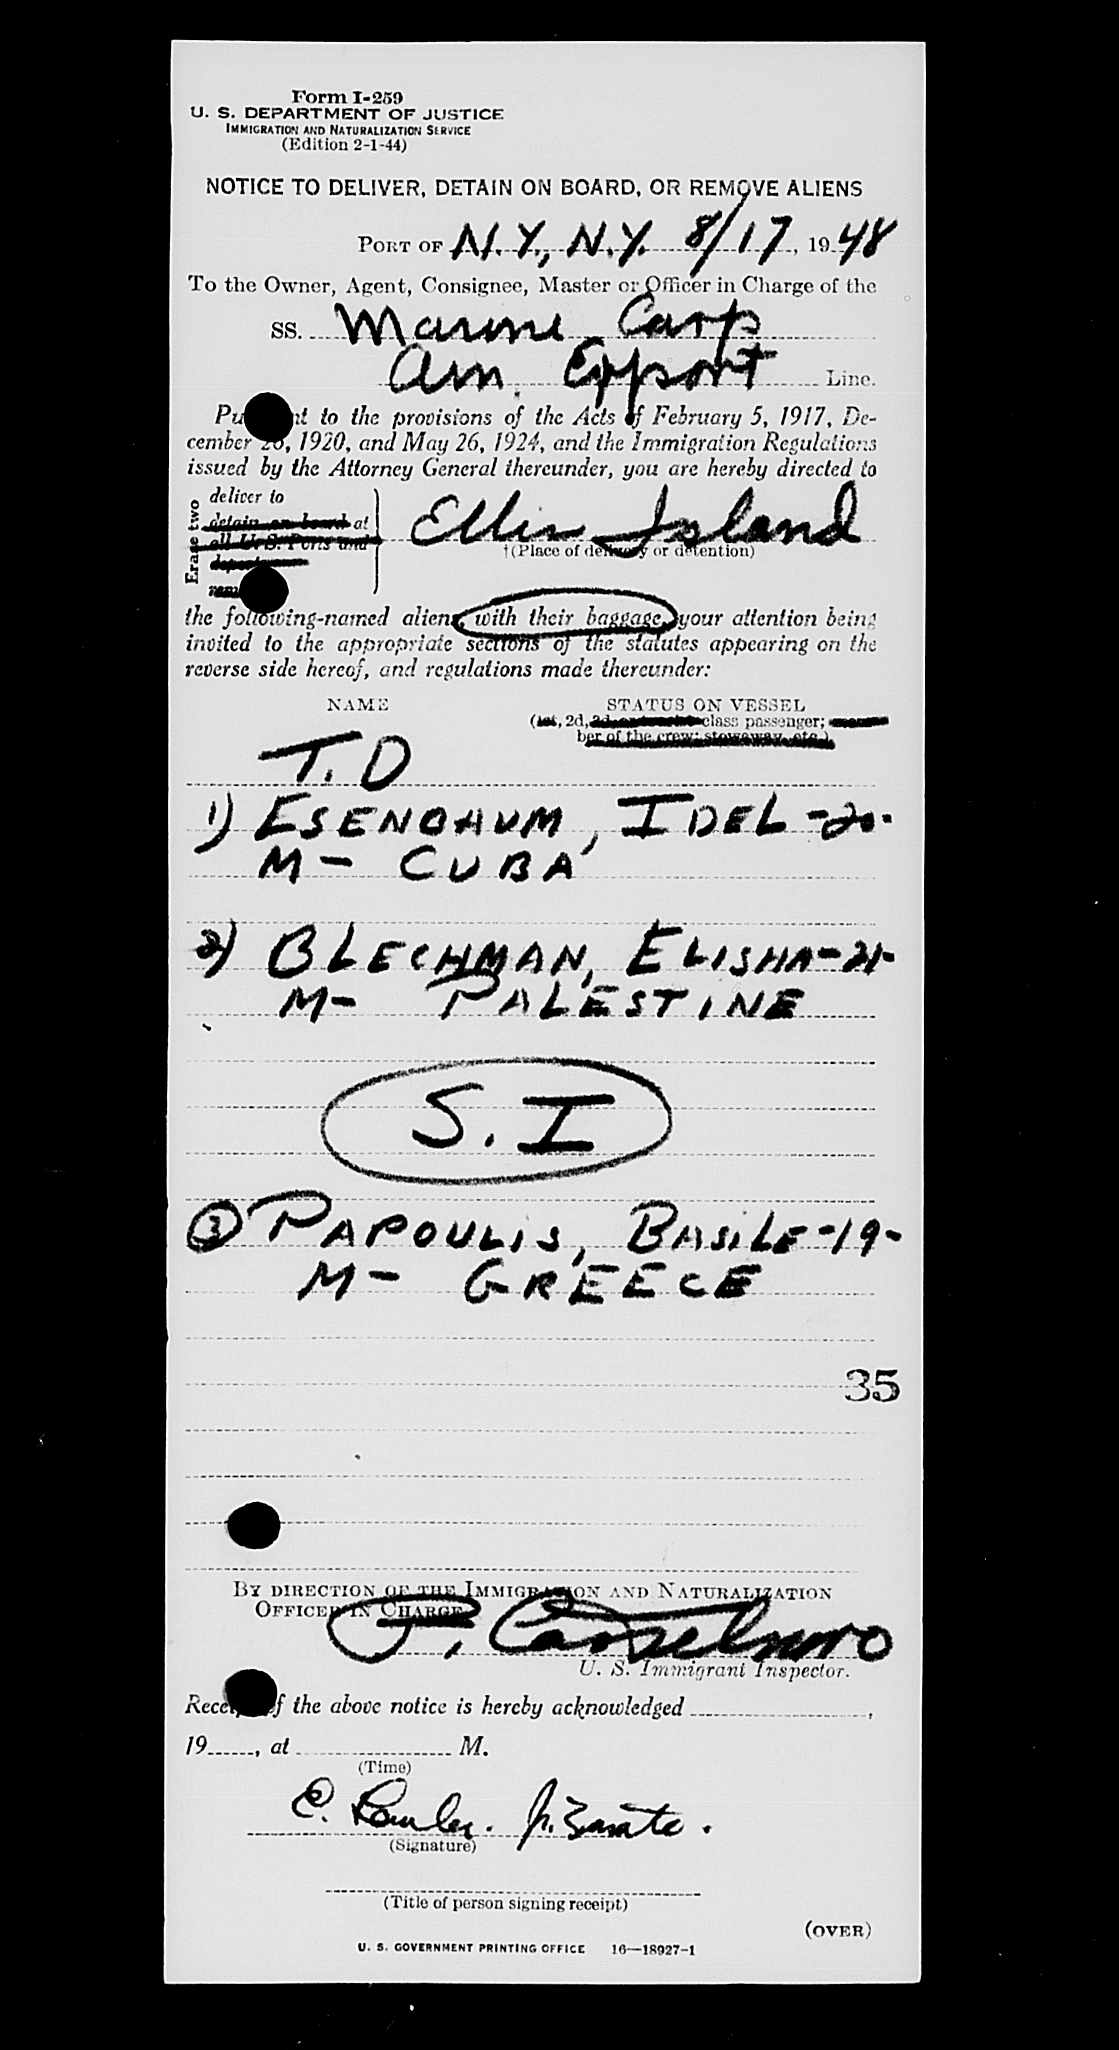 Form I-259
U. S. DEPARTMENT OF JUSTICE
IMMIGRATION AND NATURALIZATION SERVICE
(Edition 2-1-44)
NOTICE TO DELIVER, DETAIN ON BOARD, OR REMOVE ALIENS
PORT OF N.Y., N.Y. 8/17, 1948
To the Owner, Agent, Consignee, Master or Officer in Charge of the
SS. Marine Carp
Am. Export Line.
to the provisions of the Acts of February 5, 1917, De-
cember 26, 1920, and May 26, 1924, and the Immigration Regulations
issued by the Attorney General thereunder, you are hereby directed to
Erase two
deliver to
detain on board at
all U. S. Ports and
Ellis Island
†(Place of delivery or detention)
the following-named aliens, with their baggage, your attention being
invited to the appropriate sections of the statutes appearing on the
reverse side hereof, and regulations made thereunder:
NAME STATUS ON VESSEL
(1st, 2d, class passenger;
ber of the crew; stowaway, etc.)
T. D
1) ESENBAUM, IDEL -20-
M - CUBA
2) BLECHMAN, ELISHA -21-
M - PALESTINE
S. I
3 PAPOULIS, BASILE -19-
M - GREECE
35
BY DIRECTION OF THE IMMIGRATION AND NATURALIZATION
OFFICER IN CHARGE
U. S. Immigrant Inspector.
Receipt of the above notice is hereby acknowledged ,
19 , at M.
(Time)
(Signature)
(Title of person signing receipt)
(OVER)
U. S. GOVERNMENT PRINTING OFFICE 16—18927-1